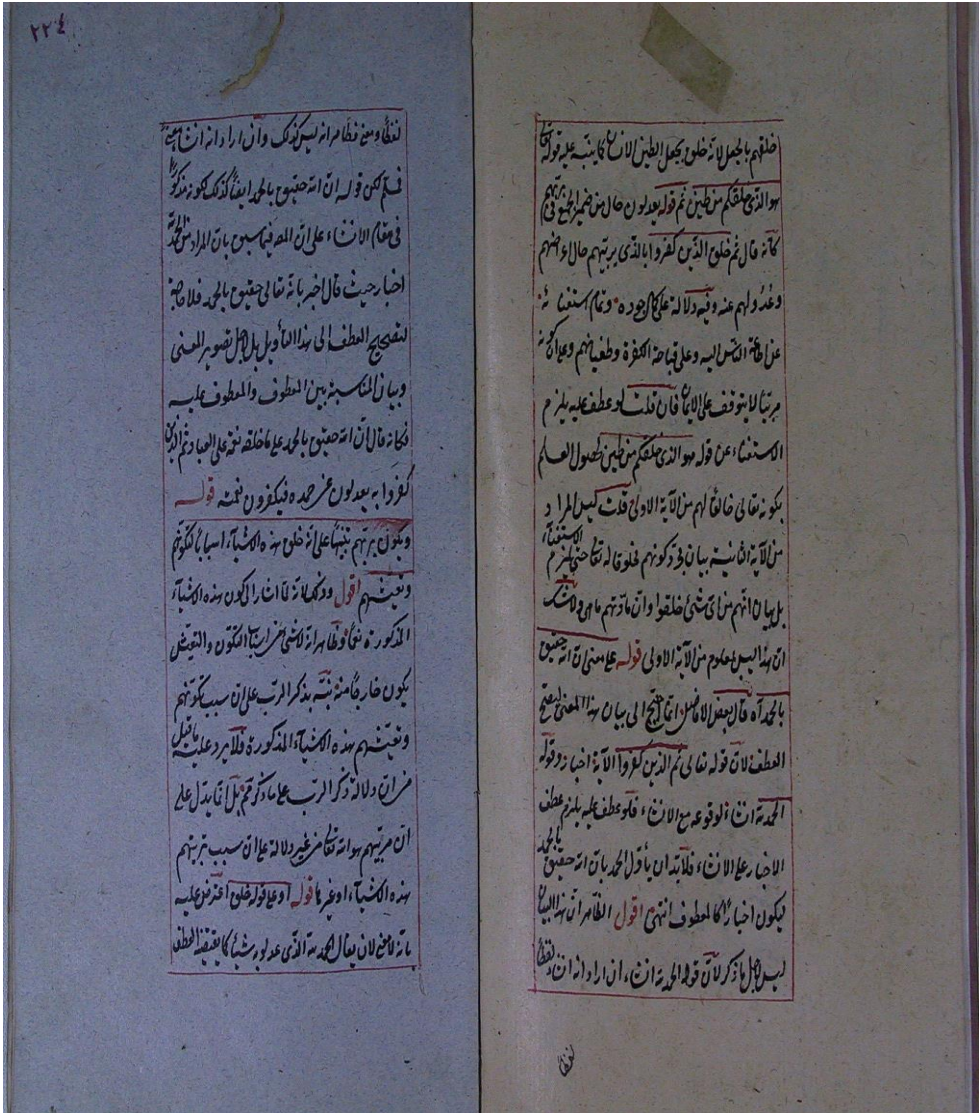 خلقهم بالجعل لانه خلق بجعل الطين الانسان كما ينبه عليه قوله تعالى
هو الذى خلقكم من طين ثم قوله يعدلون حال من ضمير الجمع فى بربهم
كانه قال ثم خلق الذين كفروا بالذى يربيهم حال اعراضهم
وعدولهم عنه وفيه دلالة على كمال جوده وتمام استغنائه
عن طاعة الناس اليه وعلى قباحة الكفرة وطغيانهم وعلى ان كونه
مربيا لا يتوقف على الايمان فان قلت لو عطف عليه يلزم
الاستغناء عن قوله هو الذى خلقكم من طين لحصول العلم
بكونه تعالى خالقا لهم من الآية الاولى قلت ليس المراد
من الآية الثانية بيان مجرد كونهم مخلوقا له تعالى حتى يلزم الاستغناء
بل بيان انهم من اى شئ خلقوا وان مادتهم ما هى ولا شك
ان هذا ليس بمعلوم من الآية الاولى قوله على معنى ان الله حقيق
بالحمد آه قال بعض الافاضل انما احتيج الى بيان هذا المعنى ليصح
العطف لان قوله تعالى ثم الذين كفروا الآية اخبار وقوله
الحمد لله انشاء لوقوعه مع الانشاء فلو عطف عليه يلزم عطف
الاخبار على الانشاء فلابد ان يأول الحمد بان الله حقيق بالحمد
ليكون اخبارا كالمعطوف انتهى اقول الظاهر ان هذا البيان
ليس لاجل ما ذكر لان قوله الحمد لله انشاء ان اراد انه انشاء لفظا
لفظا
٢٢٤
لفظا ومعنى فظاهر انه ليس كذلك وان اراد انه انشاء معنى
فمسلم لكن قوله ان الله حقيق بالحمد ايضا كذلك لكونه مذكورا
فى مقام الانشاء على ان المص فيما سبق بان المراد من الحمد لله
اخبار حيث قال اخبر بانه تعالى حقيق بالحمد فلا حاجة
لتصحيح العطف الى هذا التأويل بل لاجل تصوير المعنى
وبيان المناسبة بين المعطوف والمعطوف عليه
فكانه قال ان الله حقيق بالحمد على ما خلقه نعمة على العباد ثم الذين
كفروا به يعدلون عن حمده فيكفرون نعمته قوله
ويكون بربهم تنبيها على انه خلق هذه الاشياء اسبابا لتكونهم
وتعيشهم اقول وذلك لانه لما اشار الى كون هذه الاشياء
المذكورة نعما وظاهر انه لا شئ من اسباب التكون والتعيش
يكون خارجا منه نبه بذكر الرب على ان سبب تكونهم
وتعيشهم هذه الاشياء المذكورة فلا يرد عليه ما قيل
من ان دلالة ذكر الرب على ما ذكر بل انما يدل على
ان مربيهم هو الله تعالى من غير دلالة على ان سبب تربيتهم
هذه الاشياء او غيرها قوله او على قوله خلق اعترض عليه
بانه لا معنى لان يقال الحمد لله الذى عدلوا به شيئا كما يقتضيه العطف